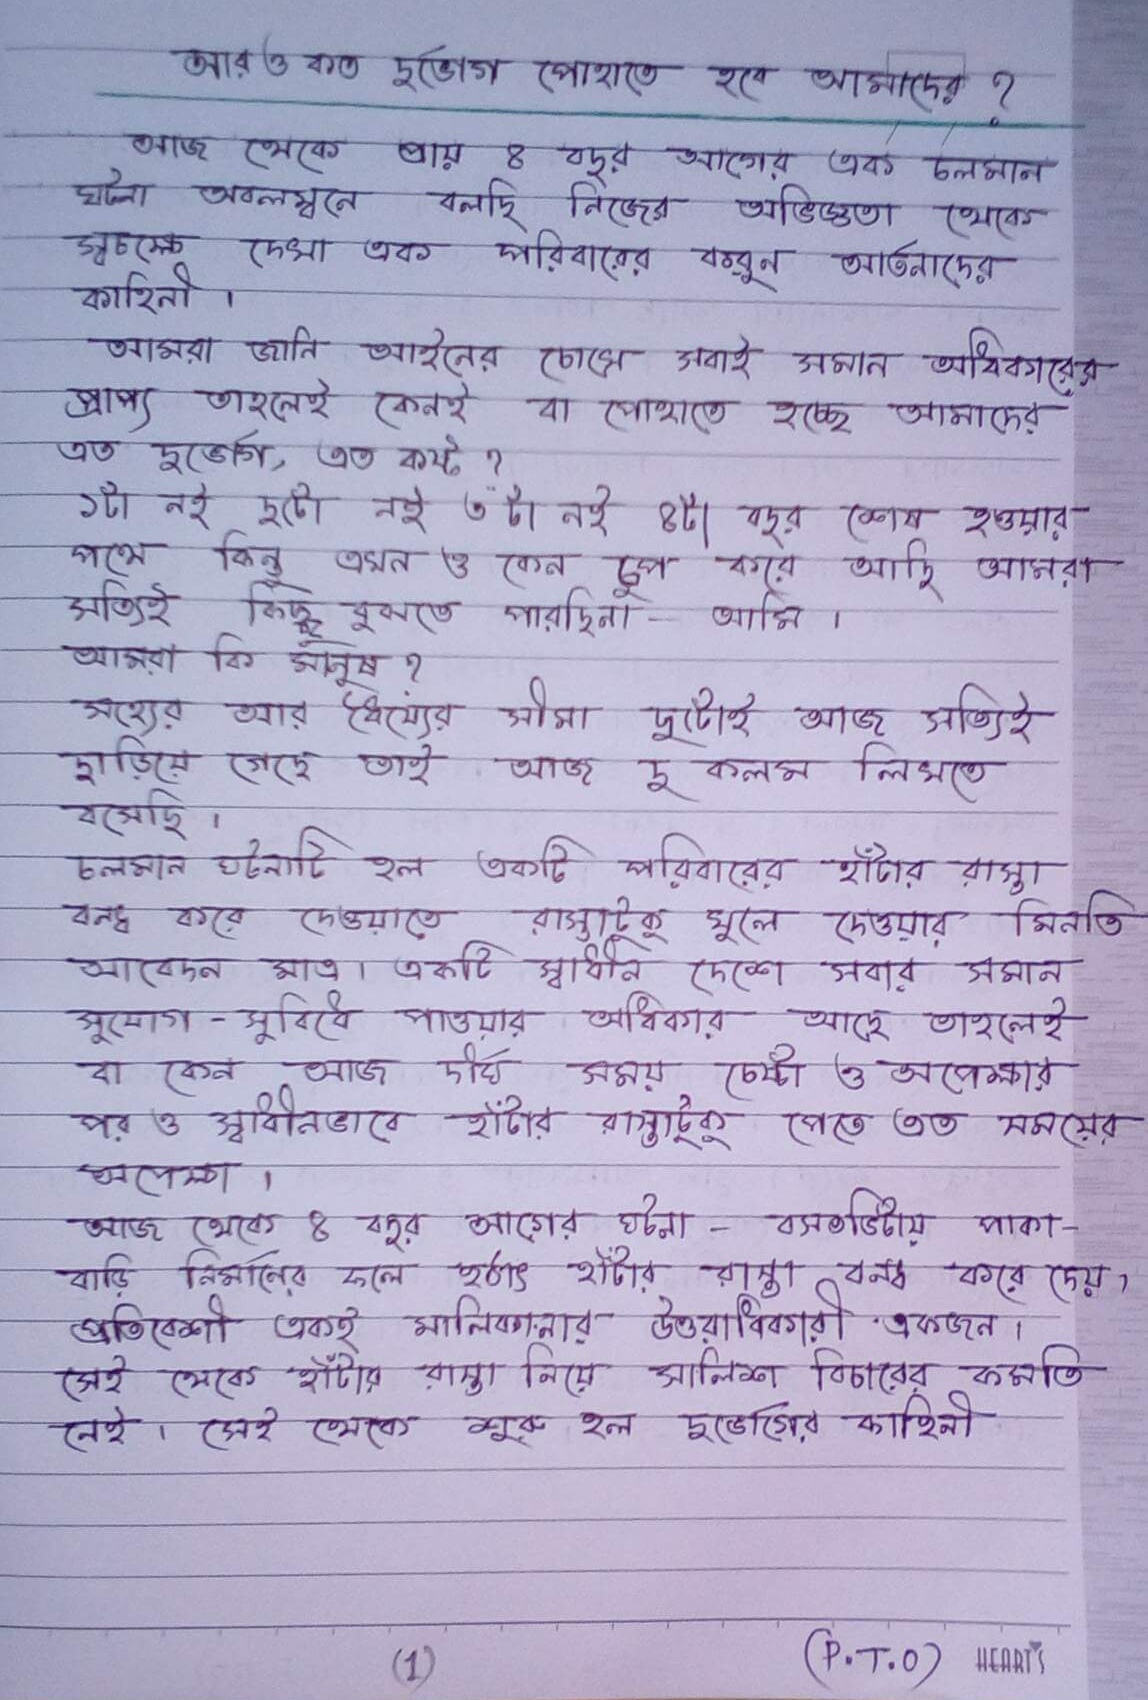 আর ও কত দুর্ভোগ পোহাতে হবে আমাদের ?
আজ থেকে প্রায় ৪ বছর আগের এক চলমান
ঘটনা অবলম্বনে বলছি নিজের অভিজ্ঞতা থেকে
স্বচক্ষে দেখা এক পরিবারের করুন আর্তনাদের
কাহিনী ।
আমরা জানি আইনের চোখে সবাই সমান অধিকারের
প্রাপ্য তাহলেই কেনই বা পোহাতে হচ্ছে আমাদের
এত দুর্ভোগ, এত কষ্ট ?
১টা নই দুটো নই ৩টা নই ৪টা বছর শেষ হওয়ার
পথে কিন্তু এখন ও কেন চুপ করে আছি আমরা
সত্যিই কিছু বুঝতে পারছিনা - আমি ।
আমরা কি মানুষ ?
সহ্যের আর ধৈর্য্যের সীমা দুটোই আজ সত্যিই
ছাড়িয়ে গেছে তাই আজ দু কলম লিখতে
বসেছি ।
চলমান ঘটনাটি হল একটি পরিবারের হাঁটার রাস্তা
বন্ধ করে দেওয়াতে রাস্তাটুকু খুলে দেওয়ার মিনতি
আবেদন মাত্র । একটি স্বাধীন দেশে সবার সমান
সুযোগ - সুবিধে পাওয়ার অধিকার আছে তাহলেই
বা কেন আজ দীর্ঘ সময় চেষ্টা ও অপেক্ষার
পর ও স্বাধীনভাবে হাঁটার রাস্তাটুকু পেতে এত সময়ের
অপেক্ষা ।
আজ থেকে ৪ বছর আগের ঘটনা - বসতভিটায় পাকা -
বাড়ি নির্মানের ফলে হঠাৎ হাঁটার রাস্তা বন্ধ করে দেয়,
প্রতিবেশী একই মালিকানার উত্তরাধিকারী একজন ।
সেই থেকে হাঁটার রাস্তা নিয়ে সালিশ বিচারের কমতি
নেই । সেই থেকে শুরু হল দুর্ভোগের কাহিনী
(1)
(P.T.O) HEART'S